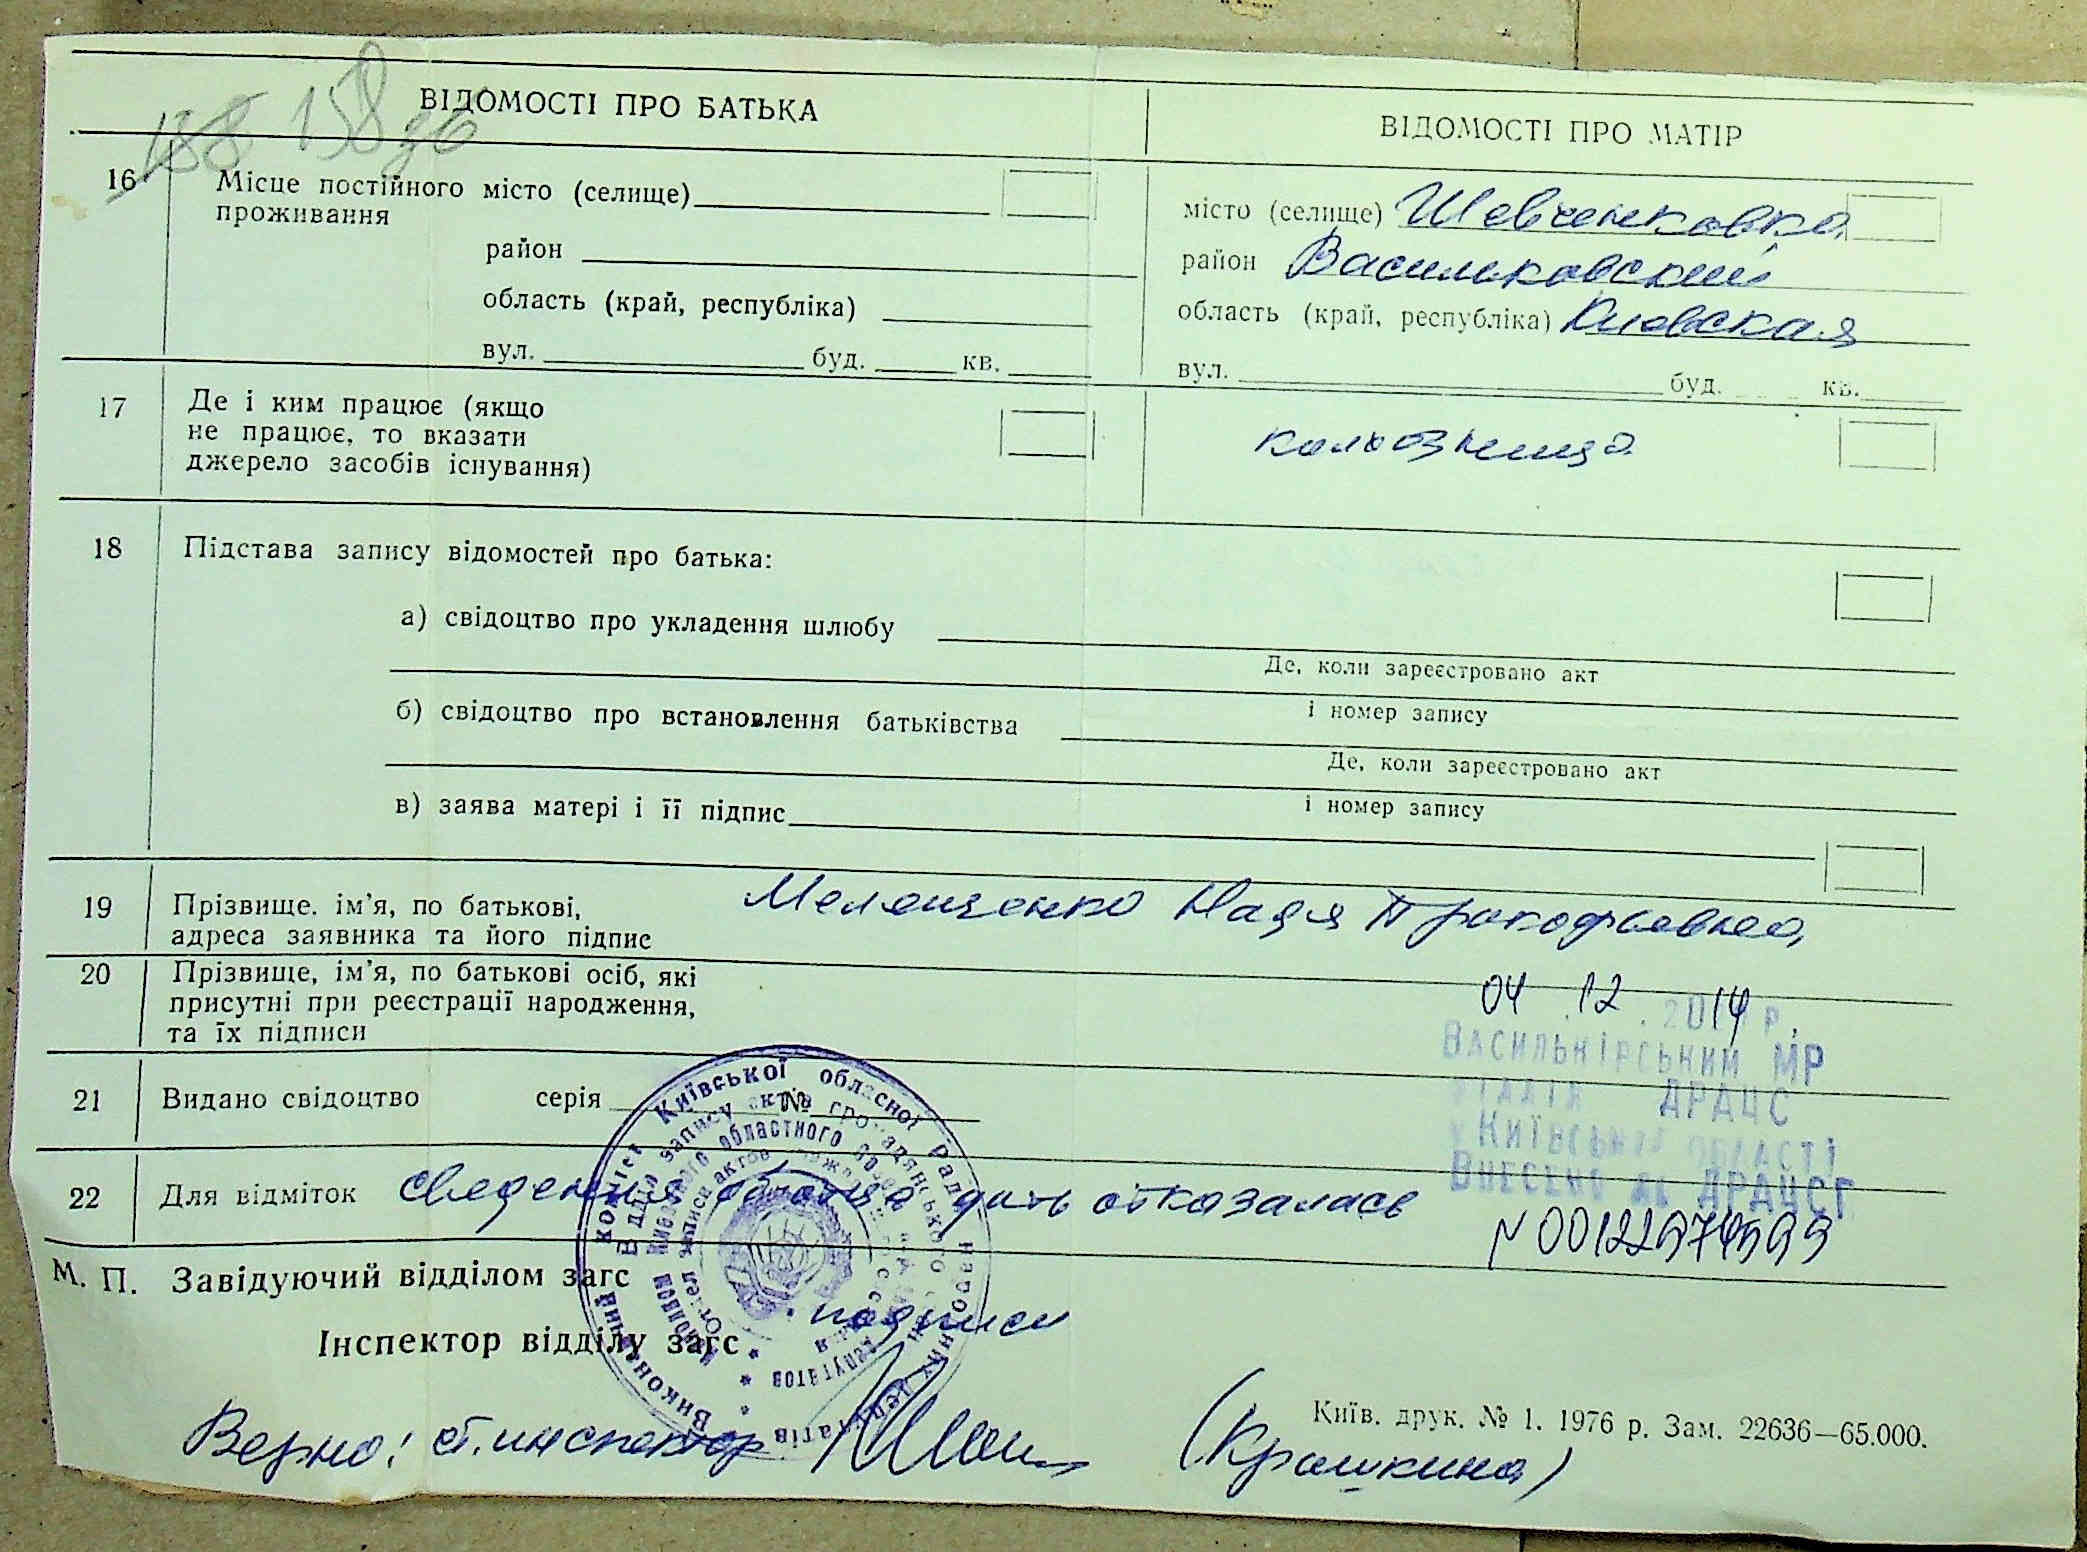 158 зв
ВІДОМОСТІ ПРО БАТЬКА
ВІДОМОСТІ ПРО МАТІР
16
Місце постійного місто (селище)
проживання
район
область (край, республіка)
вул. буд. кв.
місто (селище) Шевченковка
район Васильковский
область (край, республіка) Киевская
вул. буд. кв.
17
Де і ким працює (якщо
не працює, то вказати
джерело засобів існування)
колхозница
18
Підстава запису відомостей про батька:
а) свідоцтво про укладення шлюбу
Де, коли зареєстровано акт
і номер запису
б) свідоцтво про встановлення батьківства
Де, коли зареєстровано акт
і номер запису
в) заява матері і її підпис
19
Прізвище. ім'я, по батькові,
адреса заявника та його підпис
Мелещенко Надя Прокофьевна
20
Прізвище, ім'я, по батькові осіб, які
присутні при реєстрації народження,
та їх підписи
04 12 2014 р.
ВАСИЛЬКІВСЬКИЙ МР
ВІДДІЛ ДРАЦС
у КИЇВСЬКІЙ ОБЛАСТІ
ВНЕСЕНО ДО ДРАЦСГ
N 00122974599
21
Видано свідоцтво серія №
22
Для відміток сведения об отце дать отказалась
М. П. Завідуючий відділом загс
Інспектор відділу загс
подписи
Верно: ст. инспектор (Крашкина)
Київ. друк. № 1. 1976 р. Зам. 22636—65.000.